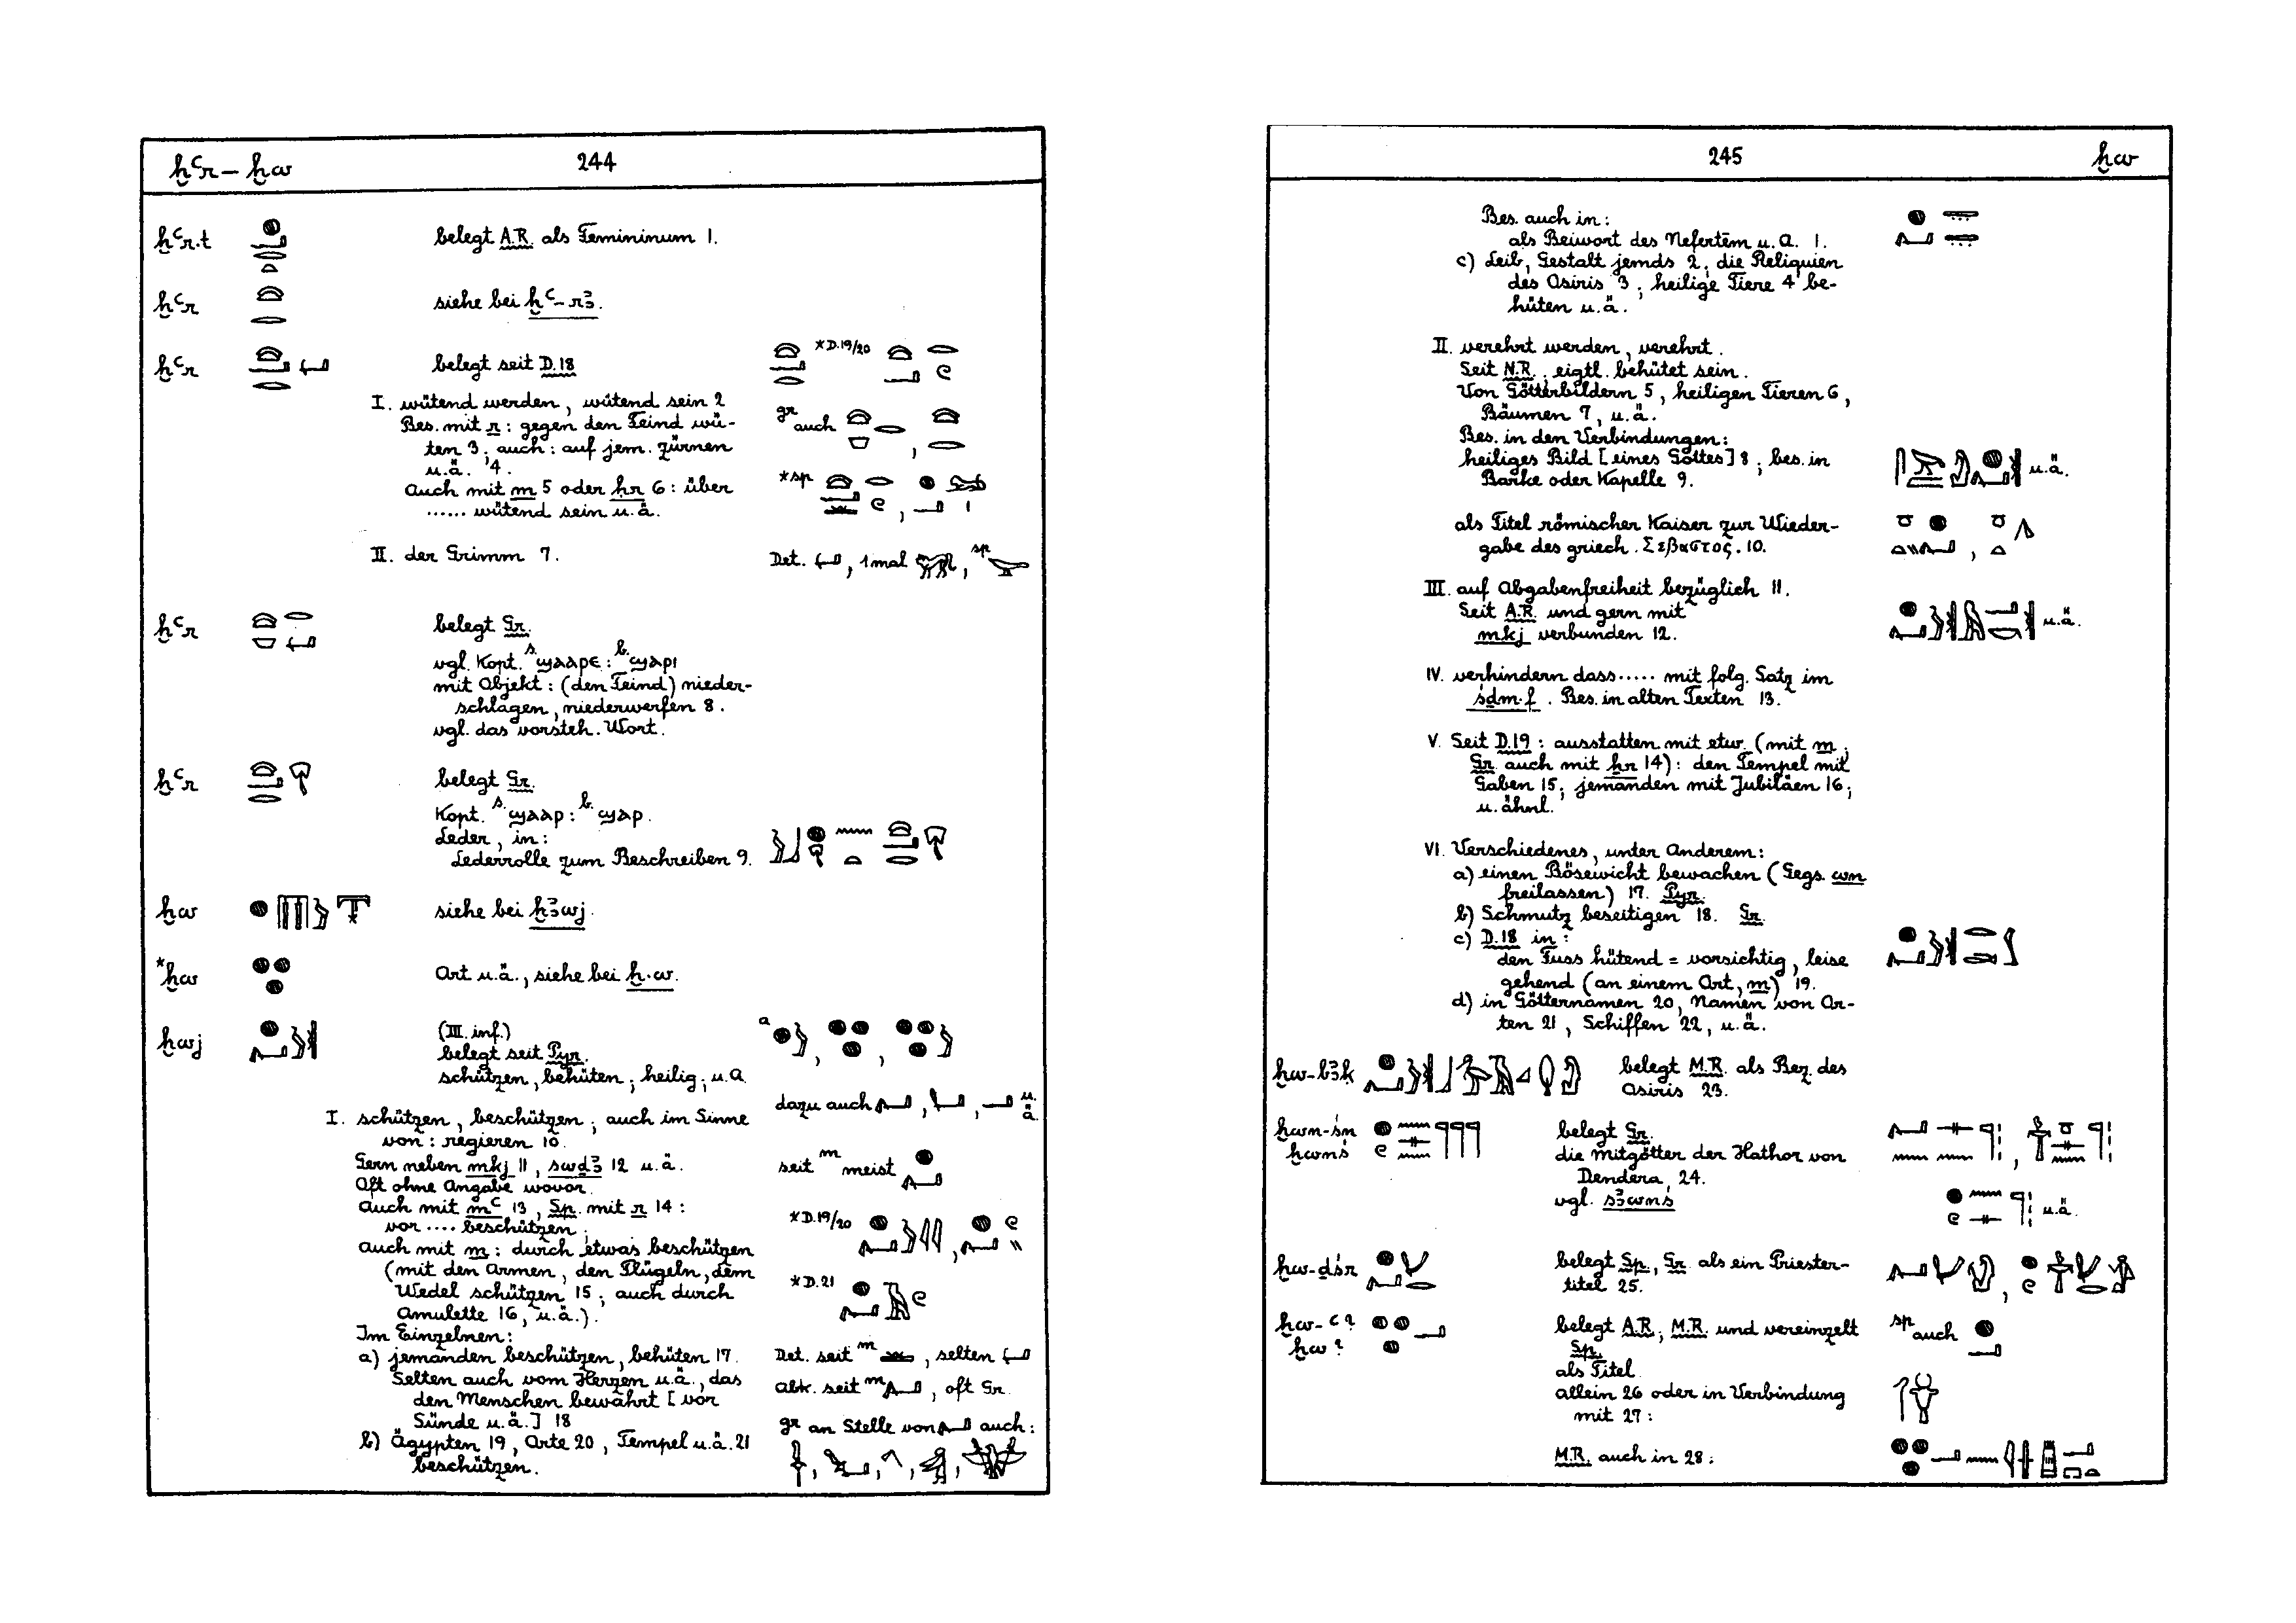 ḫꜥr – ḫw 244
ḫꜥr.t belegt A.R. als Femininum 1.
ḫꜥr siehe bei ḫꜥ-rꜣ.
ḫꜥr belegt seit D.18
*D.19/20
I. wütend werden, wütend sein 2
Bes. mit r: gegen den Feind wü-
ten 3; auch: auf jem. zürnen
u.ä. 4.
Auch mit m 5 oder ḥr 6: über
...... wütend sein u.ä.
gr auch
*sp
II. der Grimm 7.
Det. , 1mal , sp
ḫꜥr belegt Gr.
vgl. Kopt. s. ϣⲁⲁⲣⲉ : b. ϣⲁⲣⲓ
mit Objekt: (den Feind) nieder-
schlagen, niederwerfen 8.
vgl. das vorsteh. Wort.
ḫꜥr belegt Gr.
Kopt. s. ϣⲁⲁⲣ : b. ϣⲁⲣ.
Leder, in:
Lederrolle zum Beschreiben 9.
ḫw siehe bei ḫꜣwj.
*ḫw Art u.ä., siehe bei ḫ.w.
ḫwj (III. inf.)
belegt seit Pyr.
schützen, behüten; heilig; u.a.
a
dazu auch , , u.ä.
I. schützen, beschützen; auch im Sinne
von: regieren 10.
Gern neben mkj 11, swḏꜣ 12 u.ä.
Oft ohne Angabe wovor.
Auch mit mꜥ 13, Sp. mit r 14:
vor .... beschützen;
auch mit m: durch etwas beschützen
(mit den Armen, den Flügeln, dem
Wedel schützen 15; auch durch
Amulette 16, u.ä.).
Im Einzelnen:
a) jemanden beschützen, behüten 17.
Selten auch vom Herzen u.ä., das
den Menschen bewahrt [vor
Sünde u.ä.] 18
b) Ägypten 19, Orte 20, Tempel u.ä. 21
beschützen.
seit m meist
*D.19/20
*D.21
Det. seit m , selten
abk. seit m , oft Gr.
gr an Stelle von auch:
245 ḫw
Bes. auch in:
als Beiwort des Nefertem u.a. 1.
c) Leib, Gestalt jemds 2; die Reliquien
des Osiris 3; heilige Tiere 4 be-
hüten u.ä.
II. verehrt werden, verehrt.
Seit N.R.; eigtl. behütet sein.
Von Götterbildern 5, heiligen Tieren 6,
Bäumen 7, u.ä.
Bes. in den Verbindungen:
heiliges Bild [eines Gottes] 8; bes. in
Barke oder Kapelle 9.
u.ä.
als Titel römischer Kaiser zur Wieder-
gabe des griech. Σεβαστος. 10.
III. auf Abgabenfreiheit bezüglich 11.
Seit A.R. und gern mit
mkj verbunden 12.
u.ä.
IV. verhindern dass ..... mit folg. Satz im
śḏm.f. Bes. in alten Texten 13.
V. Seit D.19: ausstatten mit etw. (mit m;
Gr. auch mit ḥr 14): den Tempel mit
Gaben 15; jemanden mit Jubiläen 16;
u. ähnl.
VI. Verschiedenes, unter Anderem:
a) einen Bösewicht bewachen (Gegs. wn
freilassen) 17. Pyr.
b) Schmutz beseitigen 18. Gr.
c) D.18 in:
den Fuss hütend = vorsichtig, leise
gehend (an einem Ort, m) 19.
d) in Götternamen 20, Namen von Or-
ten 21, Schiffen 22, u.ä.
ḫw-bꜣk belegt M.R. als Bez. des
Osiris 23.
ḫwn-śn belegt Gr.
ḫwnś die Mitgötter der Hathor von
Dendera 24.
vgl. sꜣwnś
u.ä.
ḫw-dśr belegt Sp., Gr. als ein Priester-
titel 25.
ḫw-ꜥ? belegt A.R., M.R. und vereinzelt
ḫw? Sp.
als Titel.
allein 26 oder in Verbindung
mit 27:
sp auch
M.R. auch in 28: